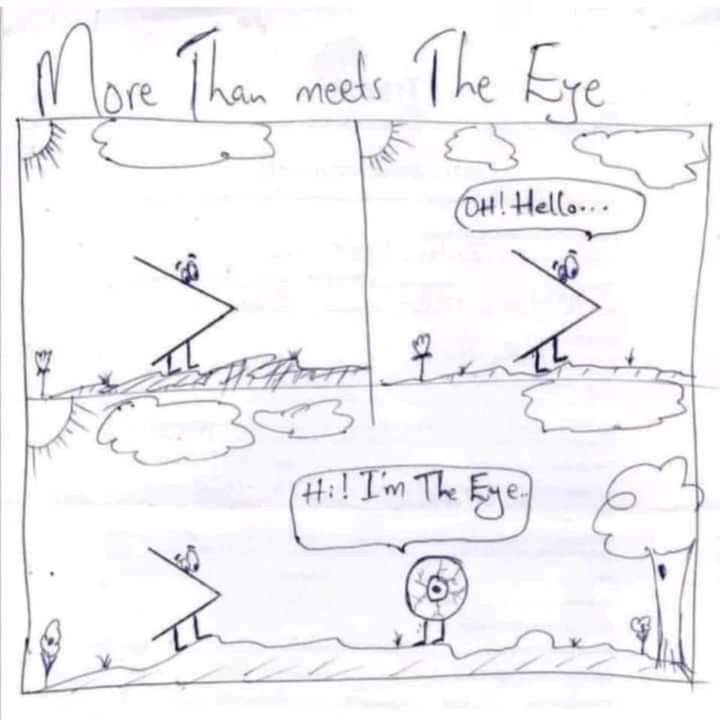 More Than meets The Eye
OH! Hello...
Hi! I'm The Eye..